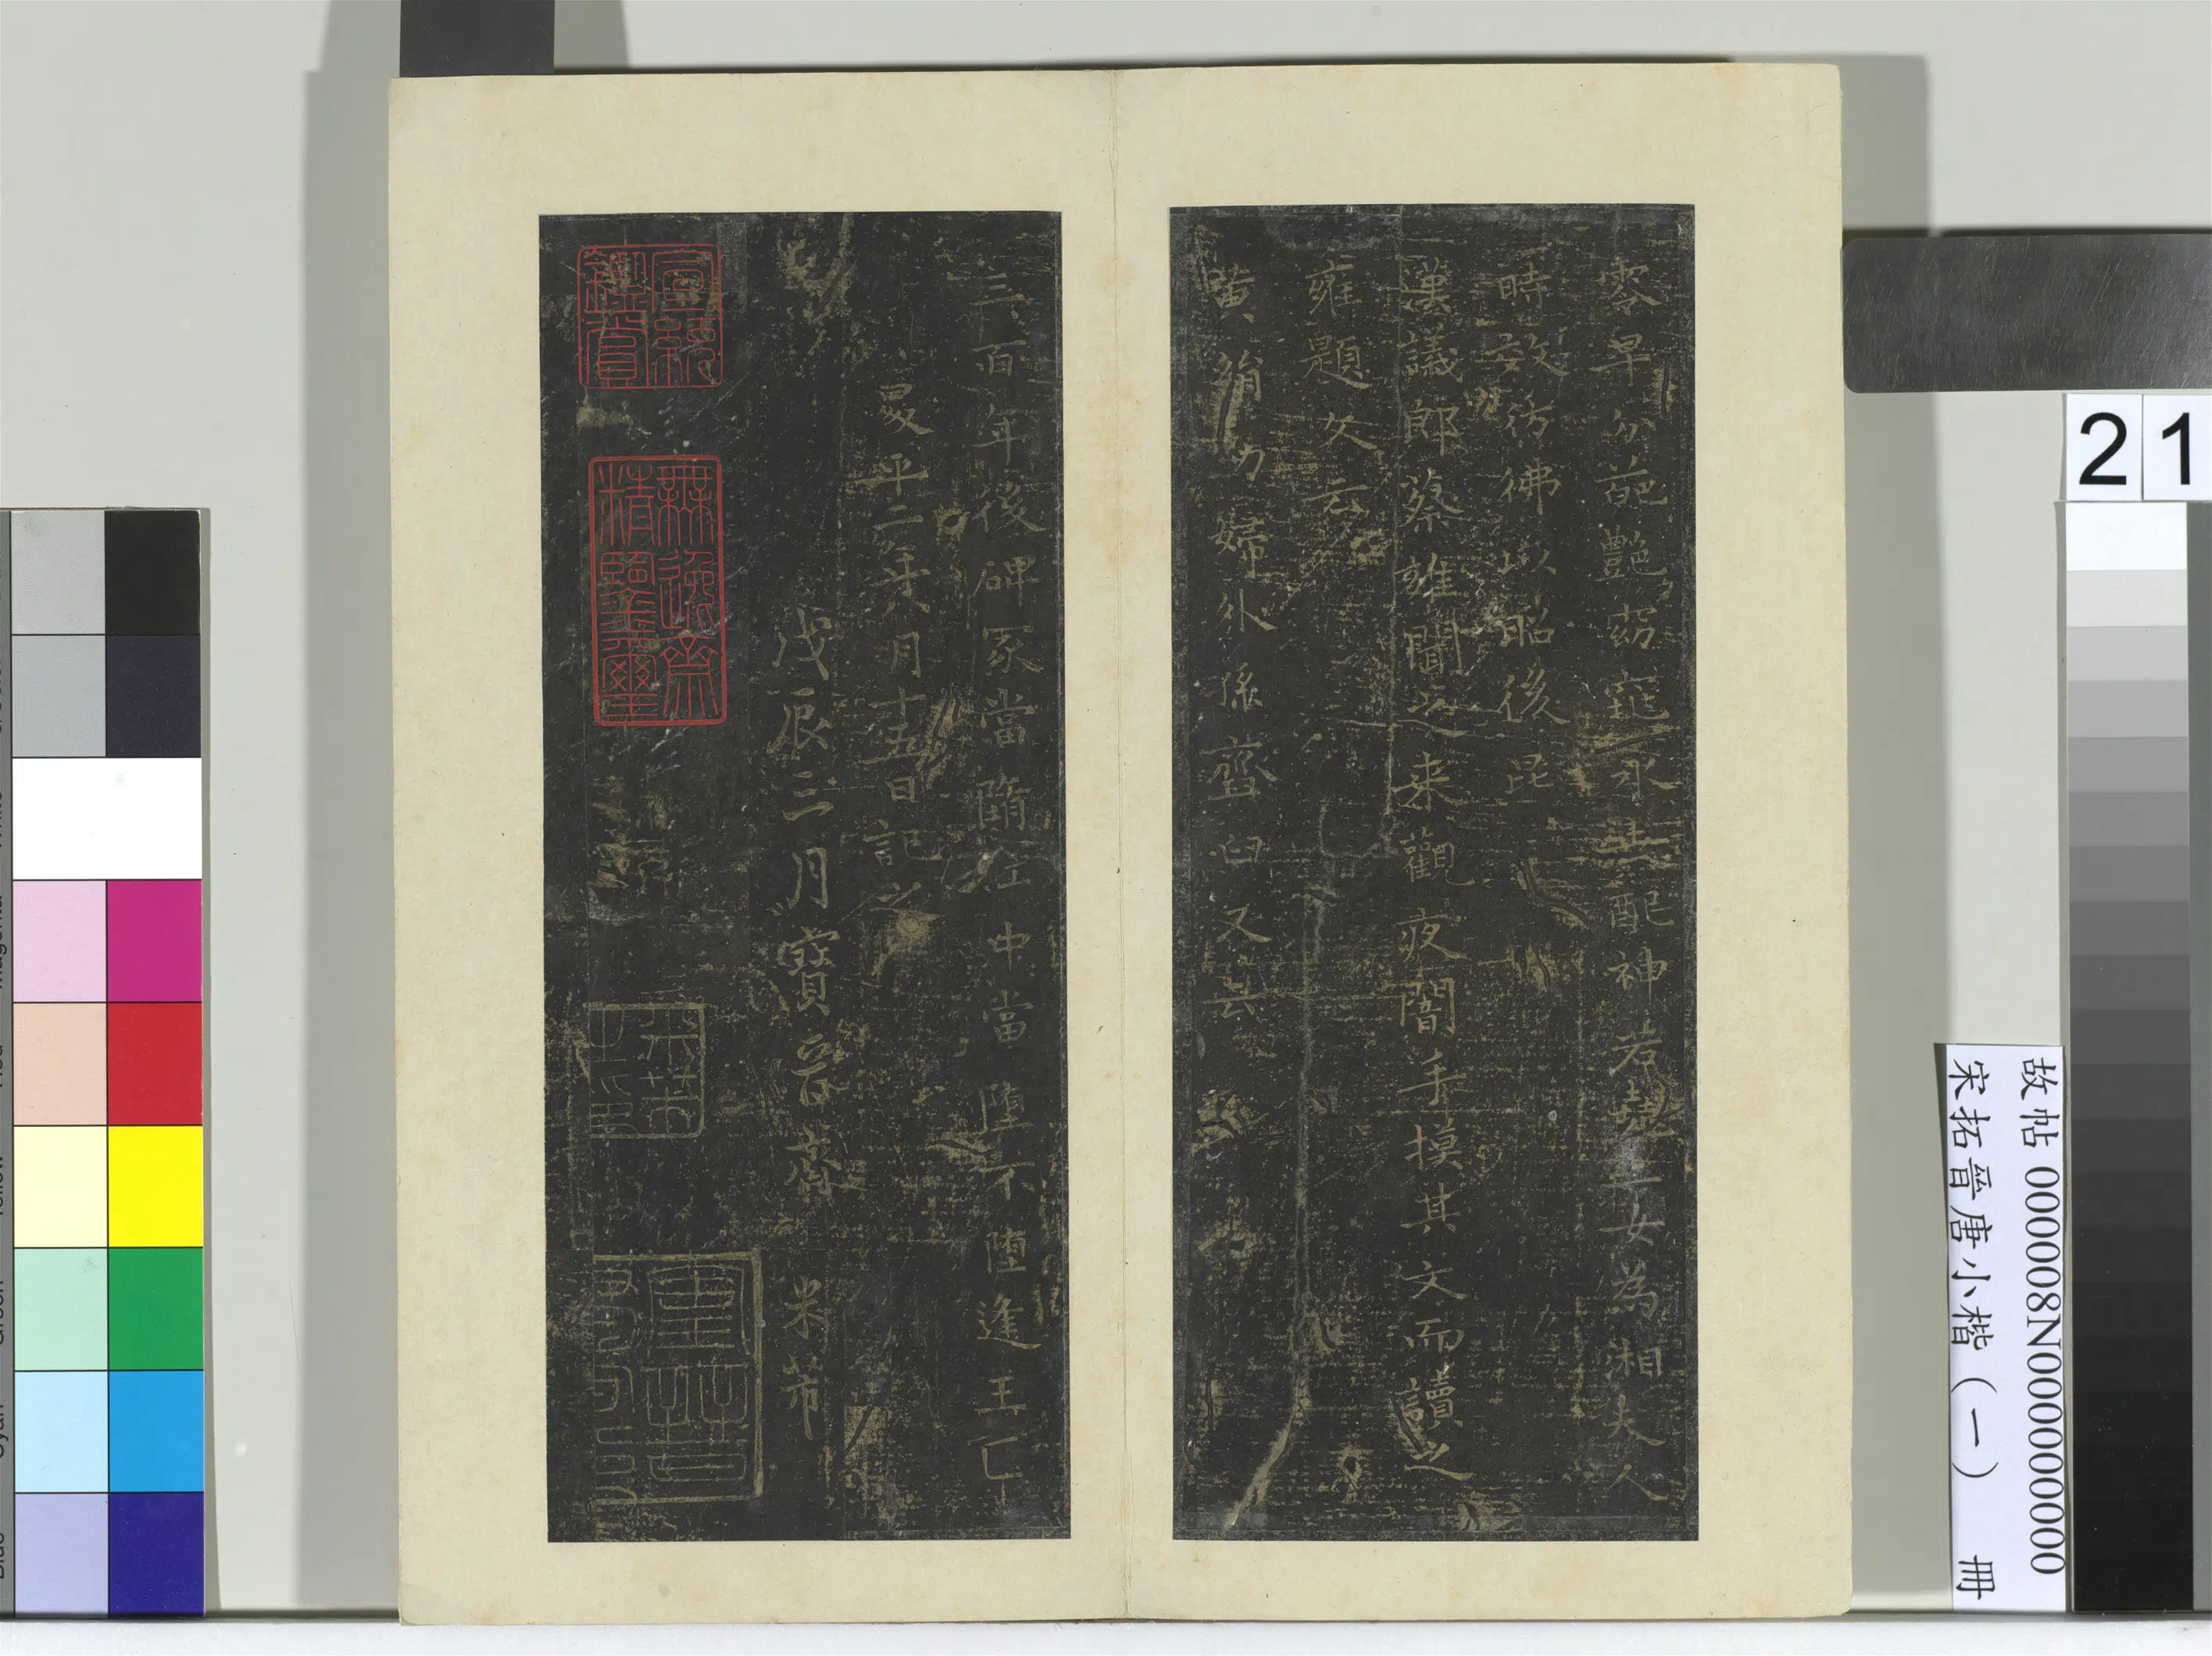 零早分葩艷窈窕永世配神若堯二女為湘夫人
時效彷彿以昭後昆
漢議郎蔡雍聞之來觀夜闇手摸其文而讀之
雍題文云
黃絹幼婦外孫齏臼又云
三百年後碑冢當墮江中當墮不墮逢王叵
昇平二年八月十五日記之
戊辰三月寶晉齋 米芾
宣統鑑賞
無逸齋精鑒璽
21
故帖 000008N000000000
宋拓晉唐小楷（一） 冊